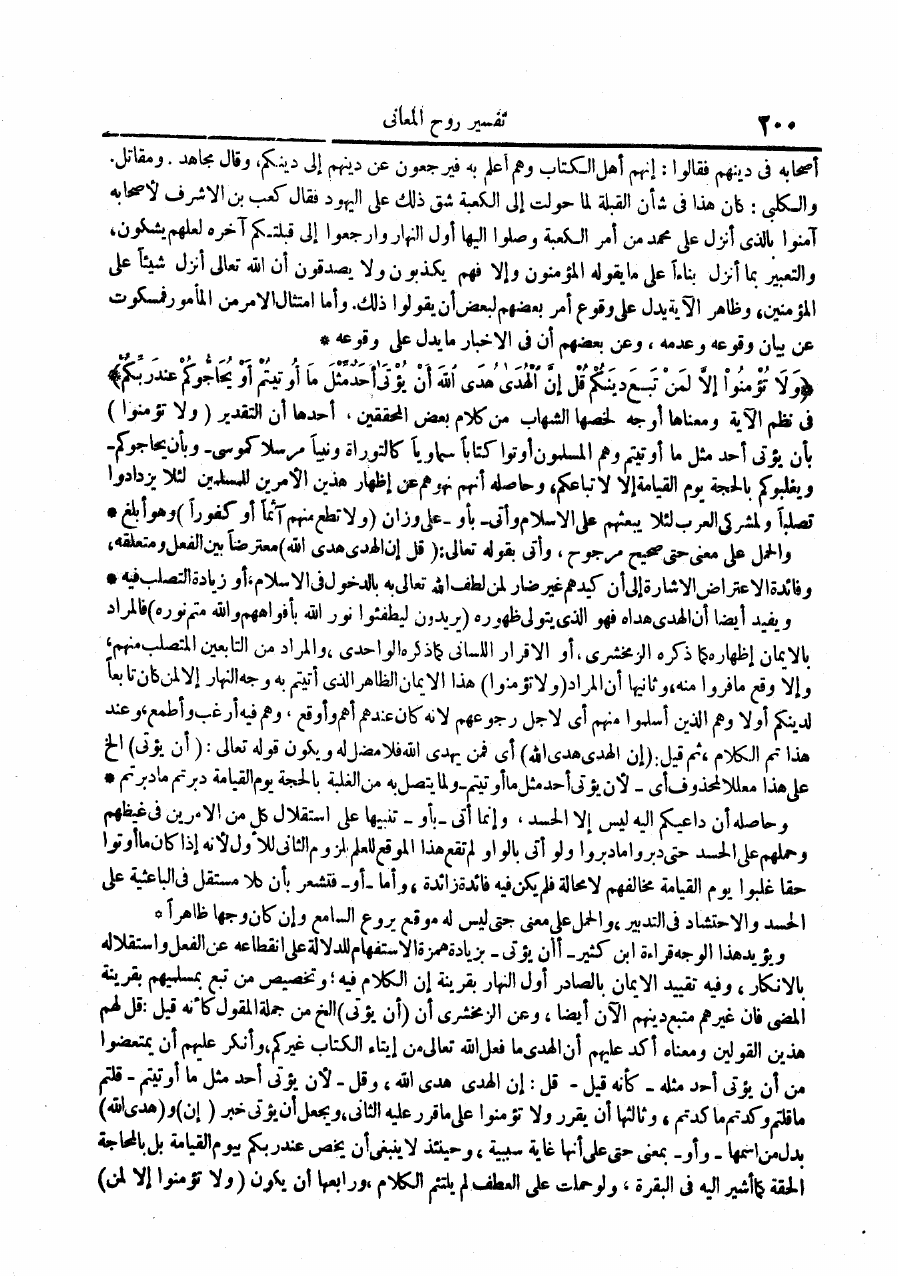 ٢٠٠ تفسير روح المعانى
أصحابه فى دينهم فقالوا : إنهم أهل الكتاب وهم أعلم به فيرجعون عن دينهم إلى دينكم، وقال مجاهد . ومقاتل.
والكلبى : كان هذا فى شأن القبلة لما حولت إلى الكعبة شق ذلك على اليهود فقال كعب بن الاشرف لأصحابه
آمنوا بالذى أنزل على محمد من أمر الكعبة وصلوا اليها أول النهار وارجعوا إلى قبلتكم آخره لعلهم يشكون،
والتعبير بما أنزل بناءاً على ما يقوله المؤمنون وإلا فهم يكذبون ولا يصدقون أن الله تعالى أنزل شيئاً على
المؤمنين، وظاهر الآية يدل على وقوع أمر بعضهم لبعض أن يقولوا ذلك. وأما امتثال الامر من المأمور فمسكوت
عن بيان وقوعه وعدمه ، وعن بعضهم أن فى الاخبار ما يدل على وقوعه *
﴿وَلَا تُؤْمِنُواْ إِلَّا لِمَنْ تَبِعَ دِينَكُمْ قُلْ إِنَّ الْهُدَى هُدَى اللهِ أَنْ يُؤْتَى أَحَدٌ مِّثْلَ مَا أُوتِيتُمْ أَوْ يُحَاجُّوكُمْ عِنْدَ رَبِّكُمْ﴾
فى نظم الآية ومعناها أوجه لخصها الشهاب من كلام بعض المحققين ، أحدها أن التقدير ( ولا تؤمنوا )
بأن يؤتى أحد مثل ما أوتيتم وهم المسلمون أوتوا كتاباً سماوياً كالتوراة ونبياً مرسلا كموسى ـ وبأن يحاجوكم ـ
ويغلبوكم بالحجة يوم القيامة إلا لاتباعكم، وحاصله أنهم نهوهم عن إظهار هذين الأمرين للمسلمين لئلا يزدادوا
تصلباً ولمشركى العرب لئلا يبعثهم على الاسلام وأتى ـ بأو ـ على وزان (ولا تطع منهم آثماً أو كفوراً ) وهو أبلغ *
والحمل على معنى حتى صحيح مرجوح ، وأتى بقوله تعالى: ( قل إن الهدى هدى الله ) معترضاً بين الفعل ومتعلقه،
وفائدة الاعتراض الاشارة إلى أن كيدهم غير ضار لمن لطف الله تعالى به بالدخول فى الاسلام ، أو زيادة التصلب فيه *
ويفيد أيضا أن الهدى هداه فهو الذى يتولى ظهوره (يريدون ليطفئوا نور الله بأفواههم والله متم نوره) فالمراد
بالايمان إظهاره كما ذكره الزمخشرى ، أو الاقرار اللسانى كما ذكره الواحدى ، والمراد من التابعين المتصلب منهم،
وإلا وقع ما فروا منه، وثانيها أن المراد (ولا تؤمنوا) هذا الايمان الظاهر الذى أتيتم به وجه النهار إلا لمن كان تابعاً
لدينكم أولا وهم الذين أسلموا منهم أى لاجل رجوعهم لانه كان عندهم أهم وأوقع ، وهم فيه أرغب وأطمع، وعند
هذا تم الكلام ، ثم قيل: (إن الهدى هدى الله) أى فمن يهدى الله فلا مضل له ويكون قوله تعالى : ( أن يؤتى ) الخ
على هذا معللا لمحذوف أى ـ لأن يؤتى أحد مثل ما أوتيتم ـ ولما يتصل به من الغلبة بالحجة يوم القيامة دبرتم ما دبرتم *
وحاصله أن داعيكم اليه ليس إلا الحسد ، وإنما أتى ـ بأو ـ تنبيها على استقلال كل من الامرين فى غيظهم
وحملهم على الحسد حتى دبروا ما دبروا ولو أتى بالواو لم تقع هذا الموقع للعلم بلزوم الثانى للأول لأنه إذا كان ما أوتوا
حقا غلبوا يوم القيامة مخالفهم لا محالة فلم يكن فيه فائدة زائدة ، وأما ـ أو ـ فتشعر بأن كلا مستقل فى الباعثية على
الحسد والاحتشاد فى التدبير ، والحمل على معنى حتى ليس له موقع يروع السامع وإن كان وجها ظاهراً *
ويؤيد هذا الوجه قراءة ابن كثير ـ أأن يؤتى ـ بزيادة همزة الاستفهام للدلالة على انقطاعه عن الفعل واستقلاله
بالانكار ، وفيه تقييد الايمان بالصادر أول النهار بقرينة إن الكلام فيه ؛ وتخصيص من تبع بمسلميهم بقرينة
المضى فان غيرهم متبع دينهم الآن أيضا ، وعن الزمخشرى أن (أن يؤتى) الخ من جملة المقول كأنه قيل : قل لهم
هذين القولين ومعناه أكد عليهم أن الهدى ما فعل الله تعالى من إيتاء الكتاب غيركم، وأنكر عليهم أن يمتعضوا
من أن يؤتى أحد مثله ـ كأنه قيل ـ قل : إن الهدى هدى الله ، وقل ـ لأن يؤتى أحد مثل ما أوتيتم ـ قلتم
ما قلتم وكدتم ما كدتم ، وثالثها أن يقرر ولا تؤمنوا على ما قرر عليه الثانى، ويجعل أن يؤتى خبر ( إن ) و (هدى الله)
بدل من اسمها ـ وأو ـ بمعنى حتى على أنها غاية سببية ، وحينئذ لا ينبغى أن يخص عند ربكم بيوم القيامة بل بالمحاجة
الحقة كما أشير اليه فى البقرة ، ولو حملت على العطف لم يلتئم الكلام ، ورابعها أن يكون ( ولا تؤمنوا إلا لمن)